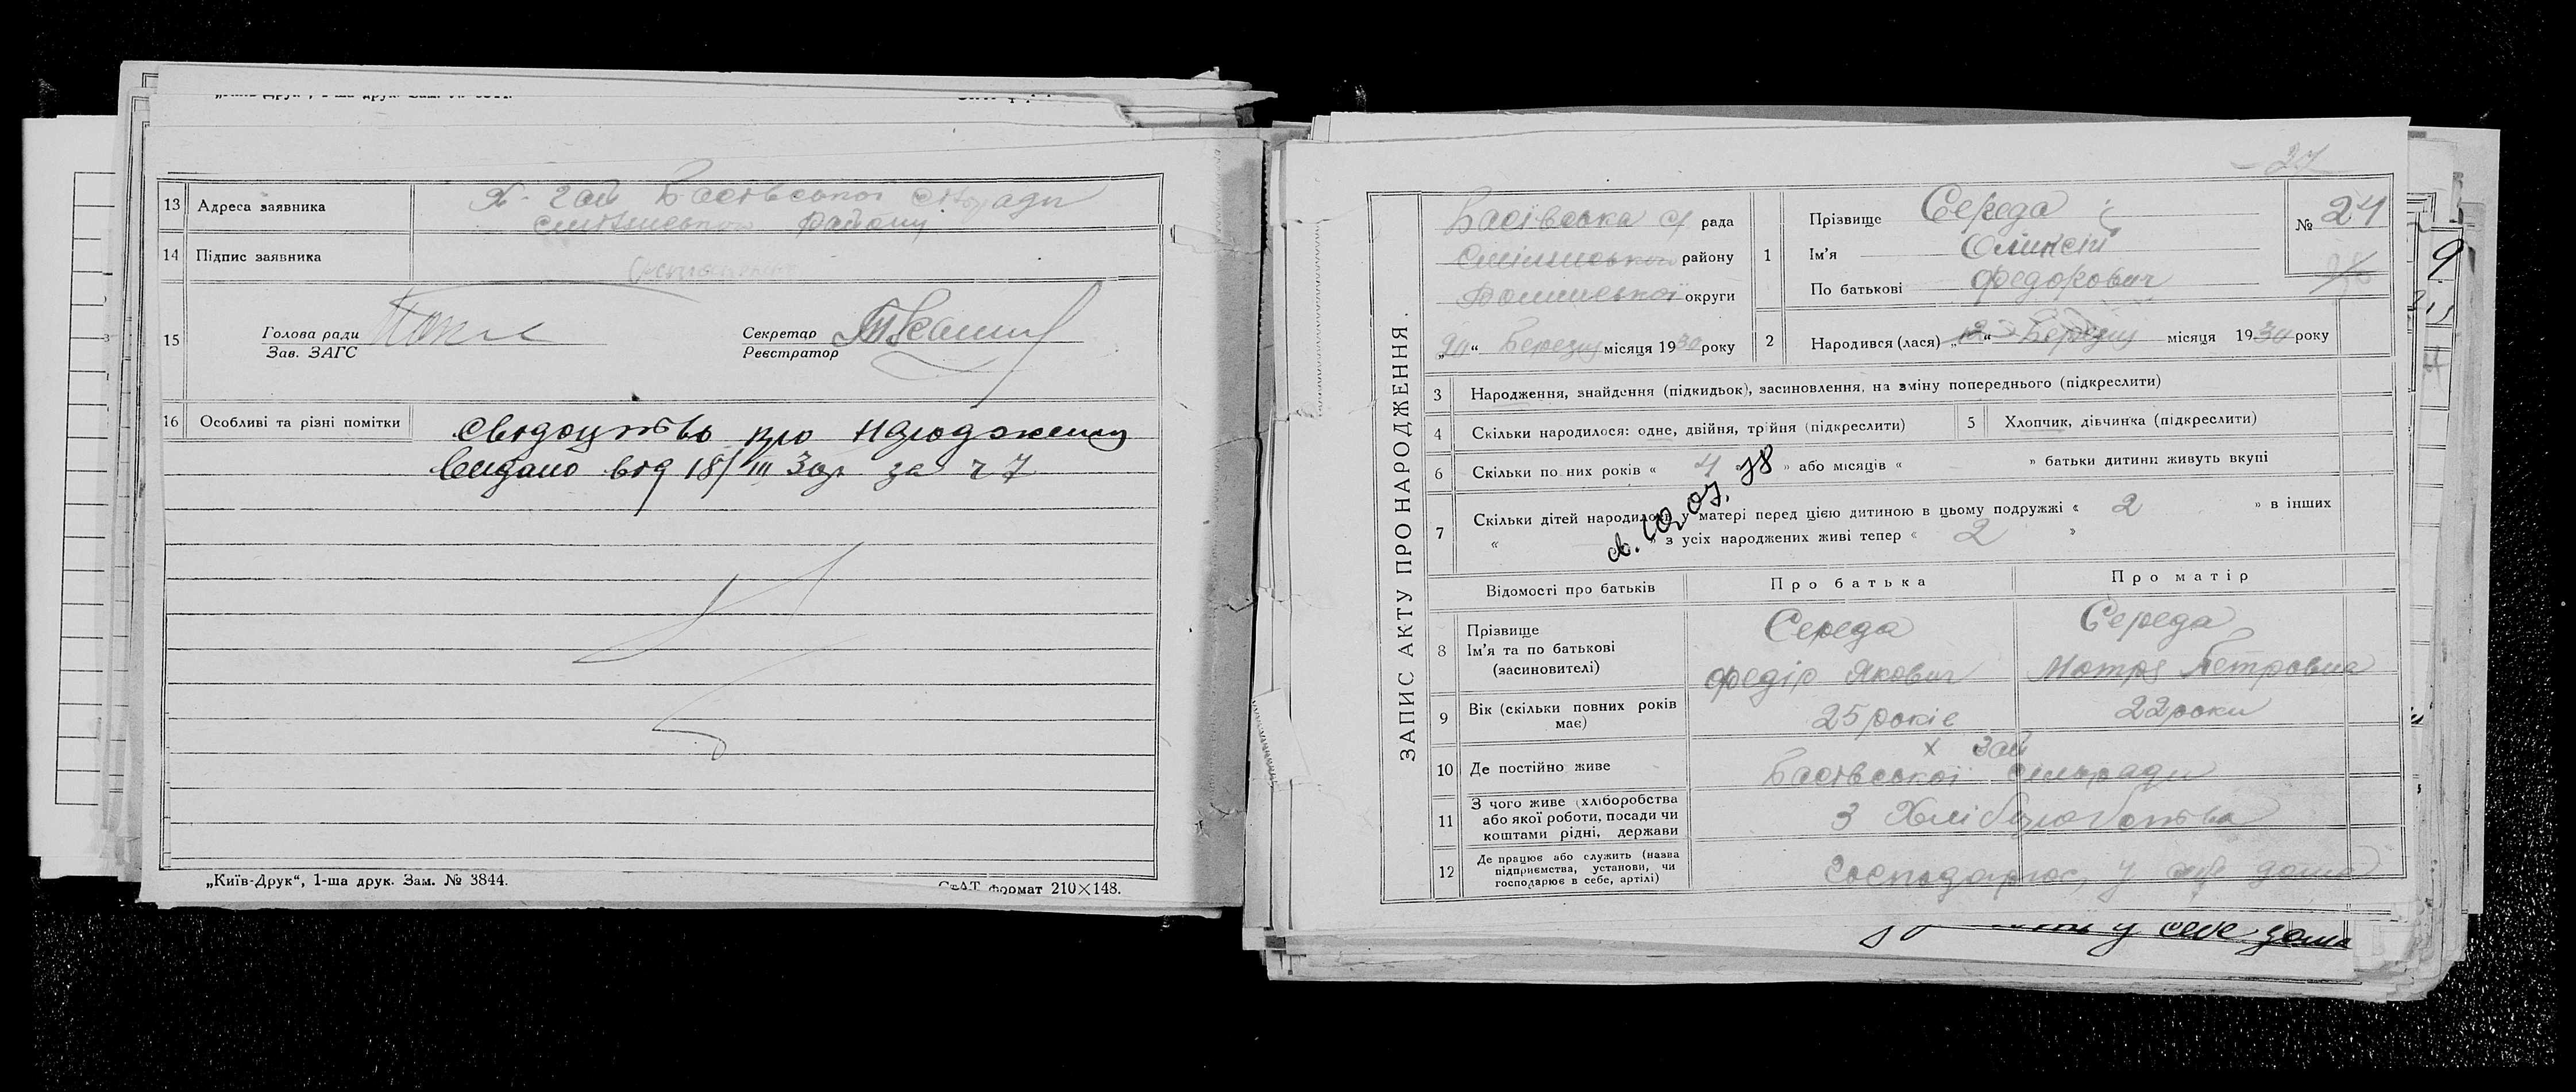 13 Адреса заявника Х. Гай Басівської сільради
Смілянського району
14 Підпис заявника
15 Голова ради
Зав. ЗАГС
Секретар
Реєстратор
16 Особливі та різні помітки Свідоцтво про народження
Видано від 18/III 30р. за ч 7
„Київ-Друк“, 1-ша друк. Зам. № 3844.
формат 210×148.
27
ЗАПИС АКТУ ПРО НАРОДЖЕННЯ.
Басівська с/ рада
району
округи
“ Березня місяця 1930 року
1 Прізвище Середа
Ім'я Оликсій
По батькові Федорович
№ 24
2 Народився (лася) Березня місяця 1930 року
3 Народження, знайдення (підкидьок), засиновлення, на зміну попереднього (підкреслити)
4 Скільки народилося: одне, двійня, трійня (підкреслити) 5 Хлопчик, дівчинка (підкреслити)
6 Скільки повних років « 4 » або місяців « » батьки дитини живуть вкупі
7 Скільки дітей народилось у матері перед цією дитиною в цьому подружжі « 2 » в інших
« » з усіх народжених живі тепер « 2 »
Відомості про батьків Про батька Про матір
8 Прізвище Ім'я та по батькові (засиновителі)
Середа Середа
Федір Якович Мотря Петровна
9 Вік (скільки повних років має) 25 років 22 роки
10 Де постійно живе х Гай
Басівської сільради
11 З чого живе (хліборобства або якої роботи, посади чи коштами рідні, держави З Хліборобства
12 Де працює або служить (назва підприємства, установи, чи господарює в себе, артілі) Господарює у себе дома
у себе дома